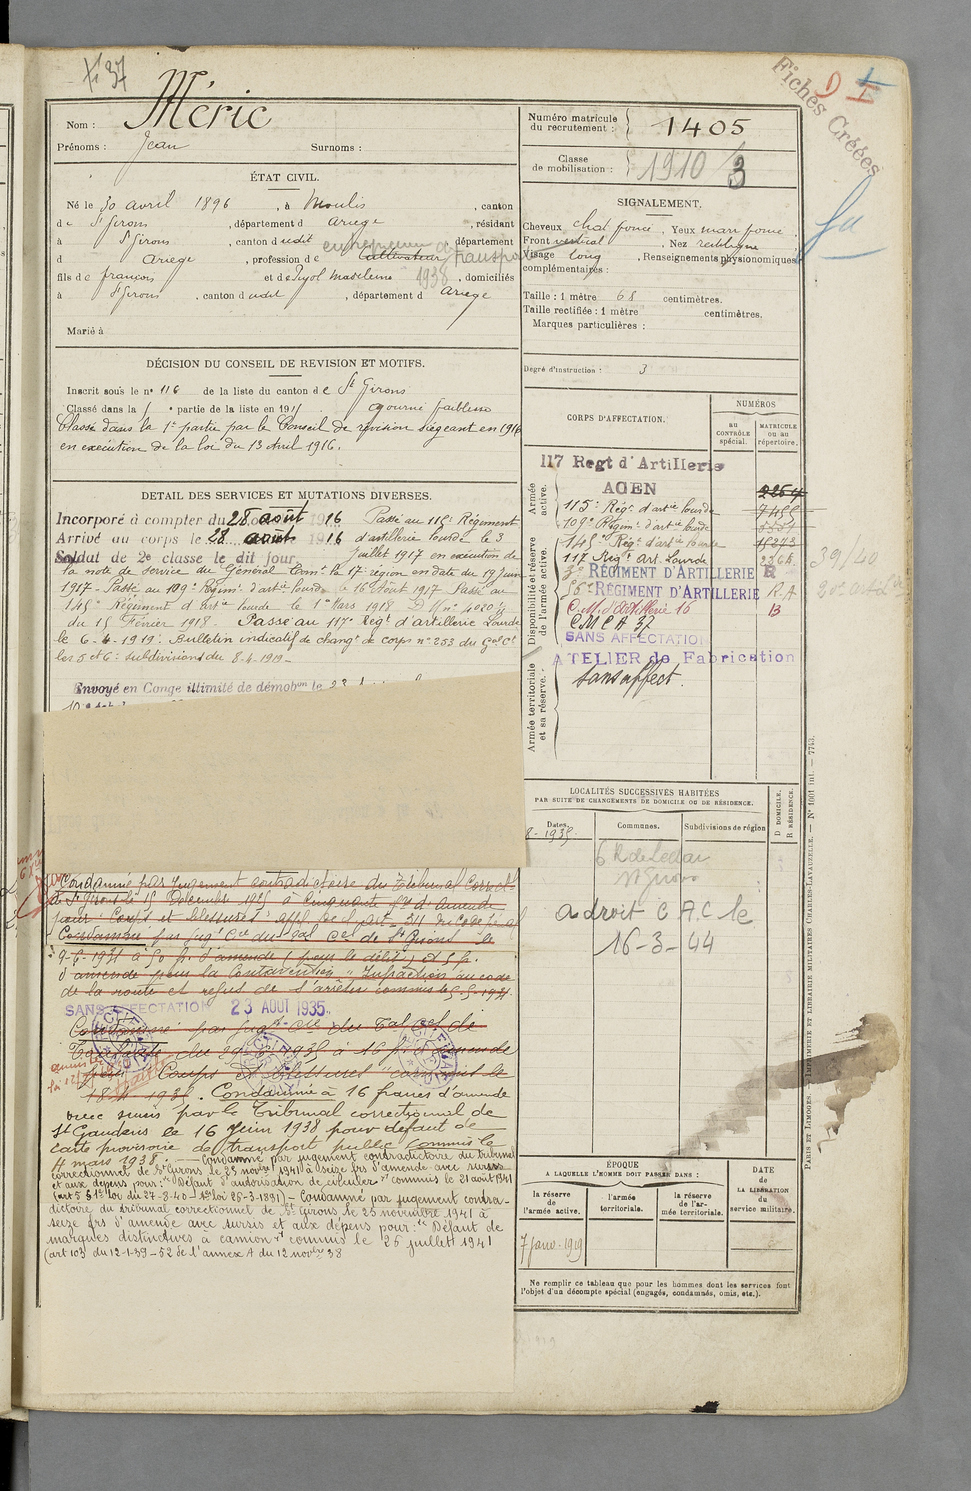 Fiches Créées
D I
37
Nom : Méric
Prénoms : Jean Surnoms :
ÉTAT CIVIL.
Né le 30 avril 1896, à Moulis, canton
de St Girons, département d Ariège, résidant
à St Girons, canton d udit, département
d Ariège, profession de cultivateur entrepreneur de transpo
1938
fils de françois et de Pujol Madeleine, domiciliés
à St Girons, canton d udit, département d Ariège
Marié à
DÉCISION DU CONSEIL DE REVISION ET MOTIFS.
Inscrit sous le n° 116 de la liste du canton de St Girons
Classé dans la partie de la liste en 191 ajourné faiblesse
Classé dans la 1e partie par le Conseil de révision siégeant en 1916
en exécution de la loi du 13 Avril 1916.
DETAIL DES SERVICES ET MUTATIONS DIVERSES.
Incorporé à compter du 28 août 1916 Passé au 115e Régiment
Arrivé au corps le 28 août 1916 d'artillerie lourde le 3
Soldat de 2e classe le dit jour. Juillet 1917 en exécution de
la note de service du Général Comt la 17e région en date du 19 Juin
1917 - Passé au 109e Régimt d'artie lourde le 16 Août 1917 Passé au
145e Régiment d'artie lourde le 1er Mars 1918
du 15 Février 1918. Passé au 117e Régt d'artillerie Lourde
le 6-4-1919. Bulletin indicatif de changt de corps n° 253 du Gal Ct
les 5 et 6e subdivisions du 8-4-1919-
Envoyé en Congé illimité de démobon le
Condamné par Jugement contradictoire du Tribunal Correctl
de St Girons le 15 Décembre 1925 à Cinquante frs d'Amende
pour "Coups et blessures" appl. de l'art. 311 du Code pénal
Condamné par jugt Cre du Tal Cel de St Girons le
9-6-1931 à 50 f. d'amende (pour le délit) et 5 f.
d'amende pour la Contravention "Infraction au code
de la route et refus de s'arrêter commis le 5-5-1931.
SANS AFFECTATION 23 AOUT 1935
Condamné par jugt Cre du Tal Cel de
à 16 f. d'amende
pour Coups et blessures commis le
1935. Condamné à 16 francs d'amende
avec sursis par le Tribunal correctionnel de
St Gaudens le 16 Juin 1938 pour défaut de
carte provisoire de transport public commis le
4 mars 1938. - Condamné par jugement contradictoire du tribunal
correctionnel de St Girons le 25 novbre 1941 à seize frs d'amende avec sursis
et aux dépens pour: "Défaut d'autorisation de circuler" commis le 21 août 1941
(art 5 § 1er loi du 27-8-40 - loi 26-3-1891) - Condamné par jugement contra-
dictoire du tribunal correctionnel de St Girons le 25 novembre 1941 à
seize frs d'amende avec sursis et aux dépens pour: "Défaut de
marques distinctives à camion" commis le 26 juillet 1941
(art 103 du 12-1-39 - 52 de l'annexe A du 12 novbre 38
Numéro matricule du recrutement : 1405
Classe de mobilisation : 1910
3
SIGNALEMENT.
Cheveux chat foncé, Yeux marr foncé.
Front vertical, Nez rectiligne
Visage long, Renseignements physionomiques
complémentaires :
Taille : 1 mètre 68 centimètres.
Taille rectifiée : 1 mètre centimètres.
Marques particulières :
Degré d'instruction : 3
CORPS D'AFFECTATION.
NUMÉROS
au CONTRÔLE spécial.
MATRICULE ou au répertoire.
Armée active.
Disponibilité et réserve de l'armée active.
Armée territoriale et sa réserve.
117 Regt d'Artillerie
AGEN 2264
115e Régt d'artie lourde
109e Régimt d'artie lourde
145e Régt d'artie lourde
117 Régt Art. Lourde
3e RÉGIMENT D'ARTILLERIE R
56e RÉGIMENT D'ARTILLERIE R A
C.M. d'Artillerie 16 B
CMCA 32
SANS AFFECTATION
ATELIER de Fabrication
sans affect.
39/40
LOCALITÉS SUCCESSIVES HABITÉES
PAR SUITE DE CHANGEMENTS DE DOMICILE OU DE RÉSIDENCE.
Dates. Communes. Subdivisions de région
D DOMICILE. R RÉSIDENCE.
8-1935
St Girons
a droit C A C le
16-3-44
ÉPOQUE
A LAQUELLE L'HOMME DOIT PASSER DANS :
la réserve de l'armée active.
l'armée territoriale.
la réserve de l'armée territoriale.
DATE de LA LIBÉRATION du service militaire.
7 janv. 1919
Ne remplir ce tableau que pour les hommes dont les services font
l'objet d'un décompte spécial (engagés, condamnés, omis, etc.).
PARIS ET LIMOGES. — IMPRIMERIE ET LIBRAIRIE MILITAIRES CHARLES-LAVAUZELLE. — N° 1001 int. — 7743.